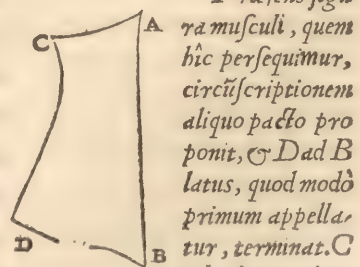 A
C
ramuſculi, quem
hîc perſequimur,
circũſcriptionem
aliquo pacto pro
ponit, & D ad B
latus, quod modò
primum appella-
tur, terminat. C
D
B